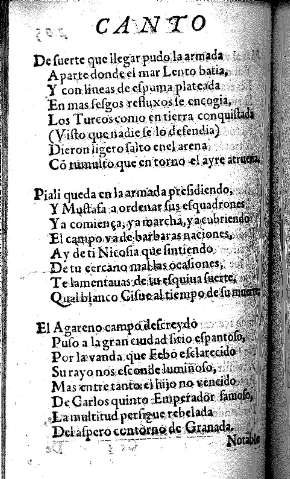 CANTO
De suerte que llegar pudo la armada
A parte donde el mar Lento batia,
Y con lineas de espuma plateada
En mas sesgos refluxos se encogia,
Los Turcos como en tierra conquistada
(Visto que nadie se lo defendia)
Dieron ligero salto enel arena
Cõ tumulto que en torno el ayre atruena.
Piali queda en la armada presidiendo,
Y Mustafa a ordenar sus esquadrones
Ya comiença, ya marcha, ya cubriendo
El campo va de barbaras naciones,
Ay de ti Nicosia que sintiendo
De tu cercano mal las ocasiones,
Te lamentauas de tu esquiua suerte,
Qual blanco Cisne al tiempo de su muerte
El Agareno campo descreydo
Puso a la gran ciudad sitio espantoso,
Por la vanda que Febo esclarecido
Su rayo nos esconde luminoso,
Mas entre tanto el hijo no vencido
De Carlos quinto Emperador famoso,
La multitud persigue rebelada
Del aspero contorno de Granada.
Notable